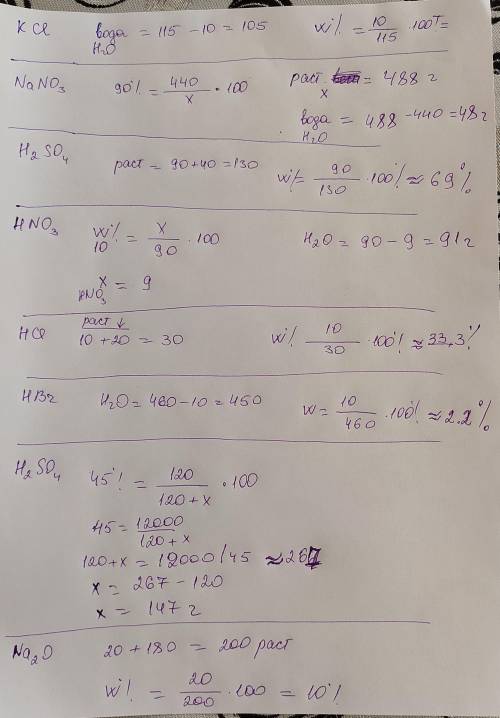 KCl вода = 115 - 10 = 105 W% = 10/115 · 100% =
H₂O
NaNO₃ 90% = 440/x · 100 раст = 488 г
x
вода = 488 - 440 = 48 г
H₂O
H₂SO₄ раст = 90 + 40 = 130 W% = 90/130 · 100% ≈ 69%
HNO₃ W% = x/90 · 100 H₂O = 90 - 9 = 91 г
10
x = 9
HNO₃
раст ↓
HCl 10 + 20 = 30 W% 10/30 · 100% ≈ 33,3%
HBr H₂O = 460 - 10 = 450 W = 10/460 · 100% ≈ 2.2%
H₂SO₄ 45% = 120/(120 + x) · 100
45 = 12000/(120 + x)
120 + x = 12000/45 ≈ 267
x = 267 - 120
x = 147 г
Na₂O 20 + 180 = 200 раст
W% = 20/200 · 100 = 10%